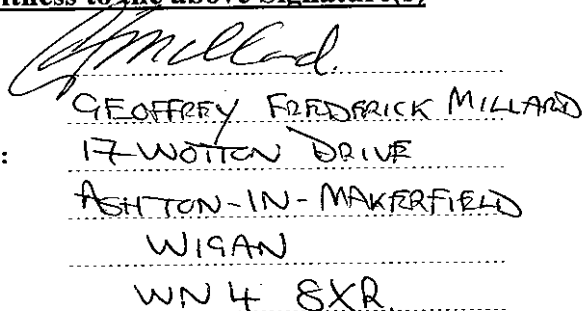 witness to the above Signature(s)
GFMillard.
GEOFFREY FREDERICK MILLARD
: 17 WOTTON DRIVE
ASHTON-IN-MAKERFIELD
WIGAN
WN4 8XR